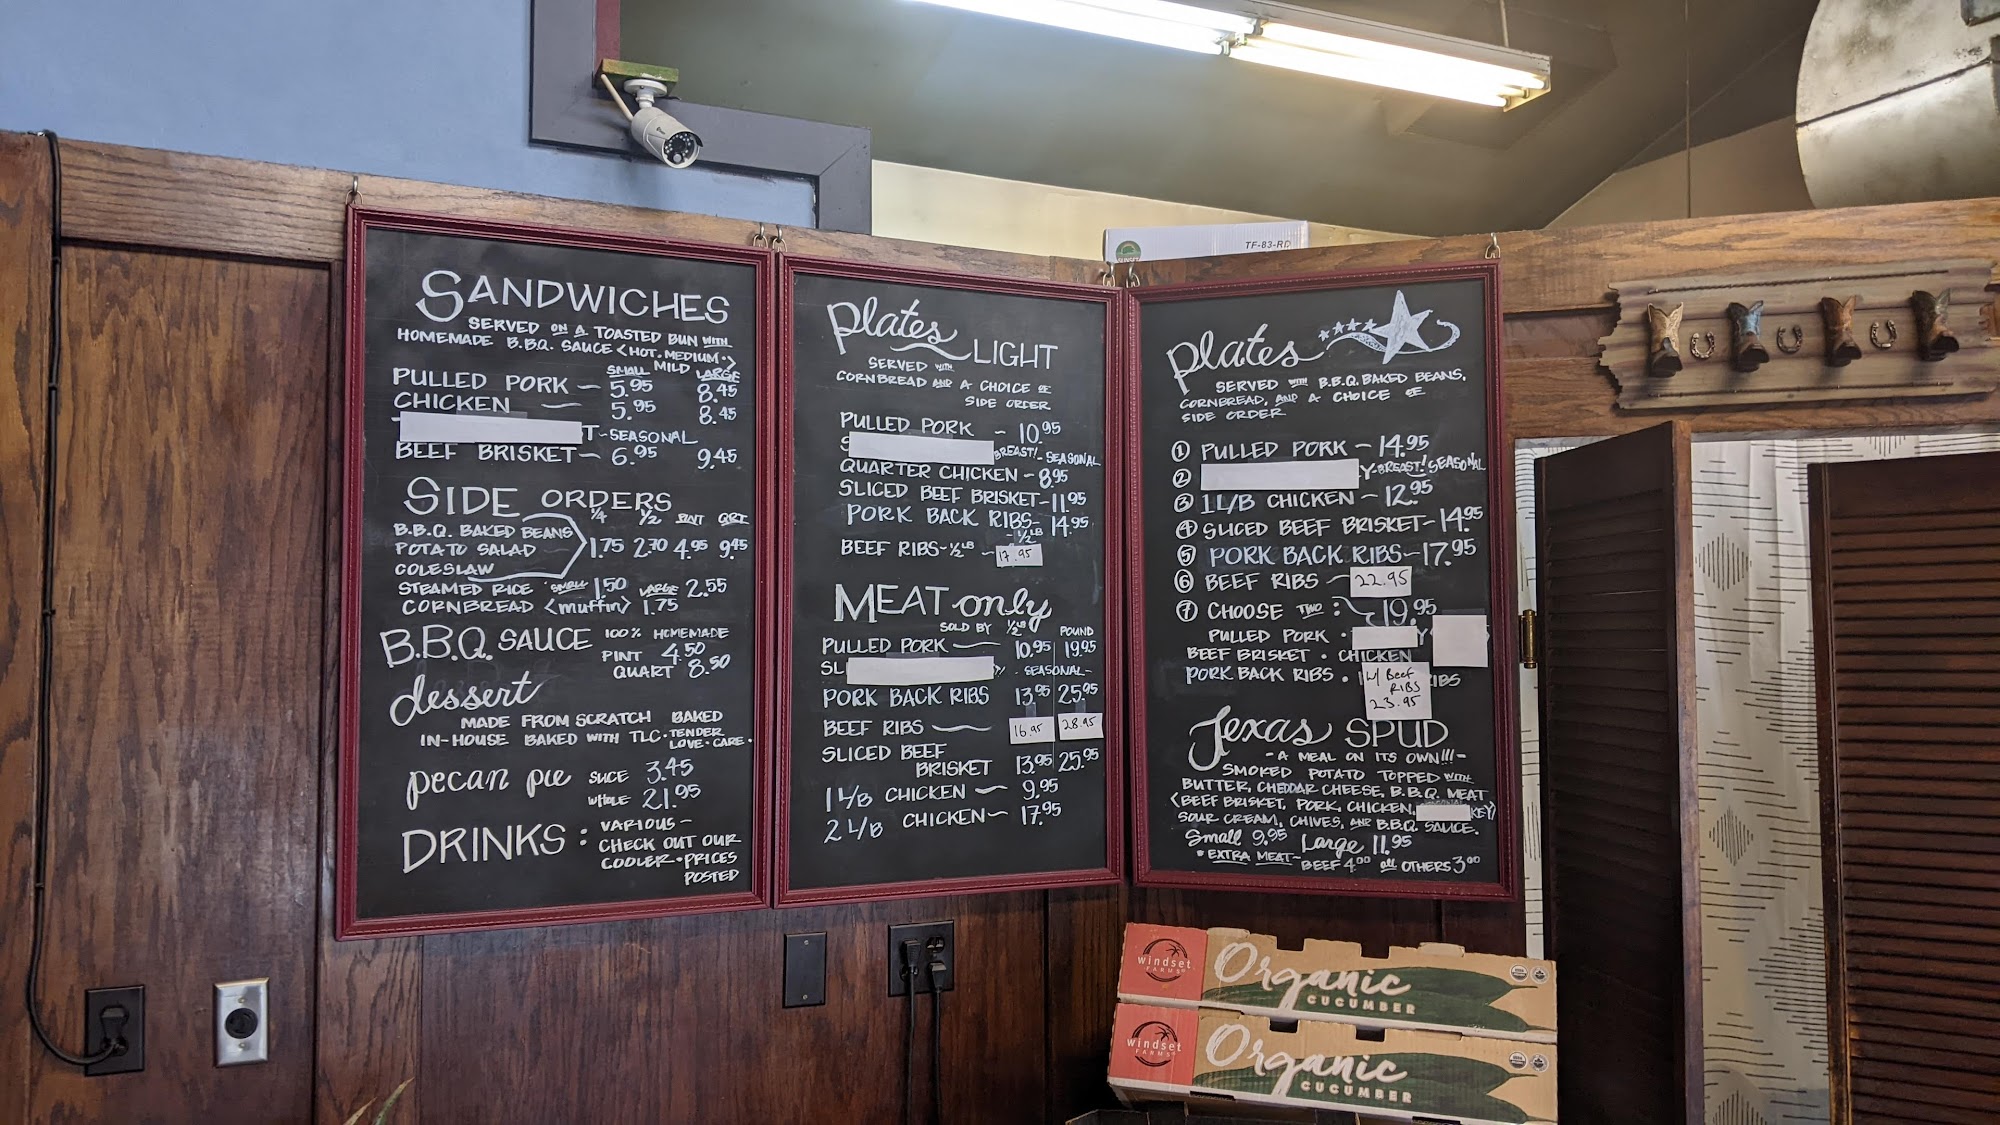 TF-83-RD
SANDWICHES
SERVED ON A TOASTED BUN WITH
HOMEMADE B.B.Q. SAUCE <HOT·MEDIUM·>
MILD
SMALL LARGE
PULLED PORK - 5.95 8.45
CHICKEN - 5.95 8.45
T-SEASONAL
BEEF BRISKET - 6.95 9.45
SIDE ORDERS
1/4 1/2 PINT QRT
B.B.Q. BAKED BEANS
POTATO SALAD 1.75 2.70 4.95 9.45
COLESLAW
STEAMED RICE SMALL 1.50 LARGE 2.55
CORNBREAD <muffin> 1.75
B.B.Q. SAUCE 100% HOMEMADE
PINT 4.50
QUART 8.50
dessert
MADE FROM SCRATCH BAKED
IN-HOUSE BAKED WITH TLC·TENDER
LOVE·CARE·
pecan pie SLICE 3.45
WHOLE 21.95
DRINKS: VARIOUS-
CHECK OUT OUR
COOLER·PRICES
POSTED
Plates LIGHT
SERVED WITH
CORNBREAD AND A CHOICE OF
SIDE ORDER
PULLED PORK - 10.95
S BREAST!-SEASONAL
QUARTER CHICKEN - 8.95
SLICED BEEF BRISKET-11.95
PORK BACK RIBS- 14.95
-1/2 LB
BEEF RIBS-1/2 LB - 17.95
MEAT only
SOLD BY 1/2 LB POUND
PULLED PORK - 10.95 19.95
SL -SEASONAL-
PORK BACK RIBS 13.95 25.95
BEEF RIBS - 16.95 28.95
SLICED BEEF
BRISKET 13.95 25.95
1 L/B CHICKEN - 9.95
2 L/B CHICKEN - 17.95
Plates
SERVED WITH B.B.Q. BAKED BEANS,
CORNBREAD, AND A CHOICE OF
SIDE ORDER
1 PULLED PORK - 14.95
2 Y-BREAST! SEASONAL
3 1 L/B CHICKEN - 12.95
4 SLICED BEEF BRISKET-14.95
5 PORK BACK RIBS-17.95
6 BEEF RIBS - 22.95
7 CHOOSE TWO: 19.95
PULLED PORK · Y
BEEF BRISKET · CHICKEN
PORK BACK RIBS · RIBS
W/ Beef
RIBS
23.95
Texas SPUD
-A MEAL ON ITS OWN!!!-
SMOKED POTATO TOPPED WITH
BUTTER, CHEDDAR CHEESE, B.B.Q. MEAT
<BEEF BRISKET, PORK, CHICKEN, KEY>
SOUR CREAM, CHIVES, AND B.B.Q. SAUCE.
Small 9.95 Large 11.95
*EXTRA MEAT- BEEF 4.00 all OTHERS 3.00
windset
FARMS
Organic
CUCUMBER
windset
FARMS
Organic
CUCUMBER